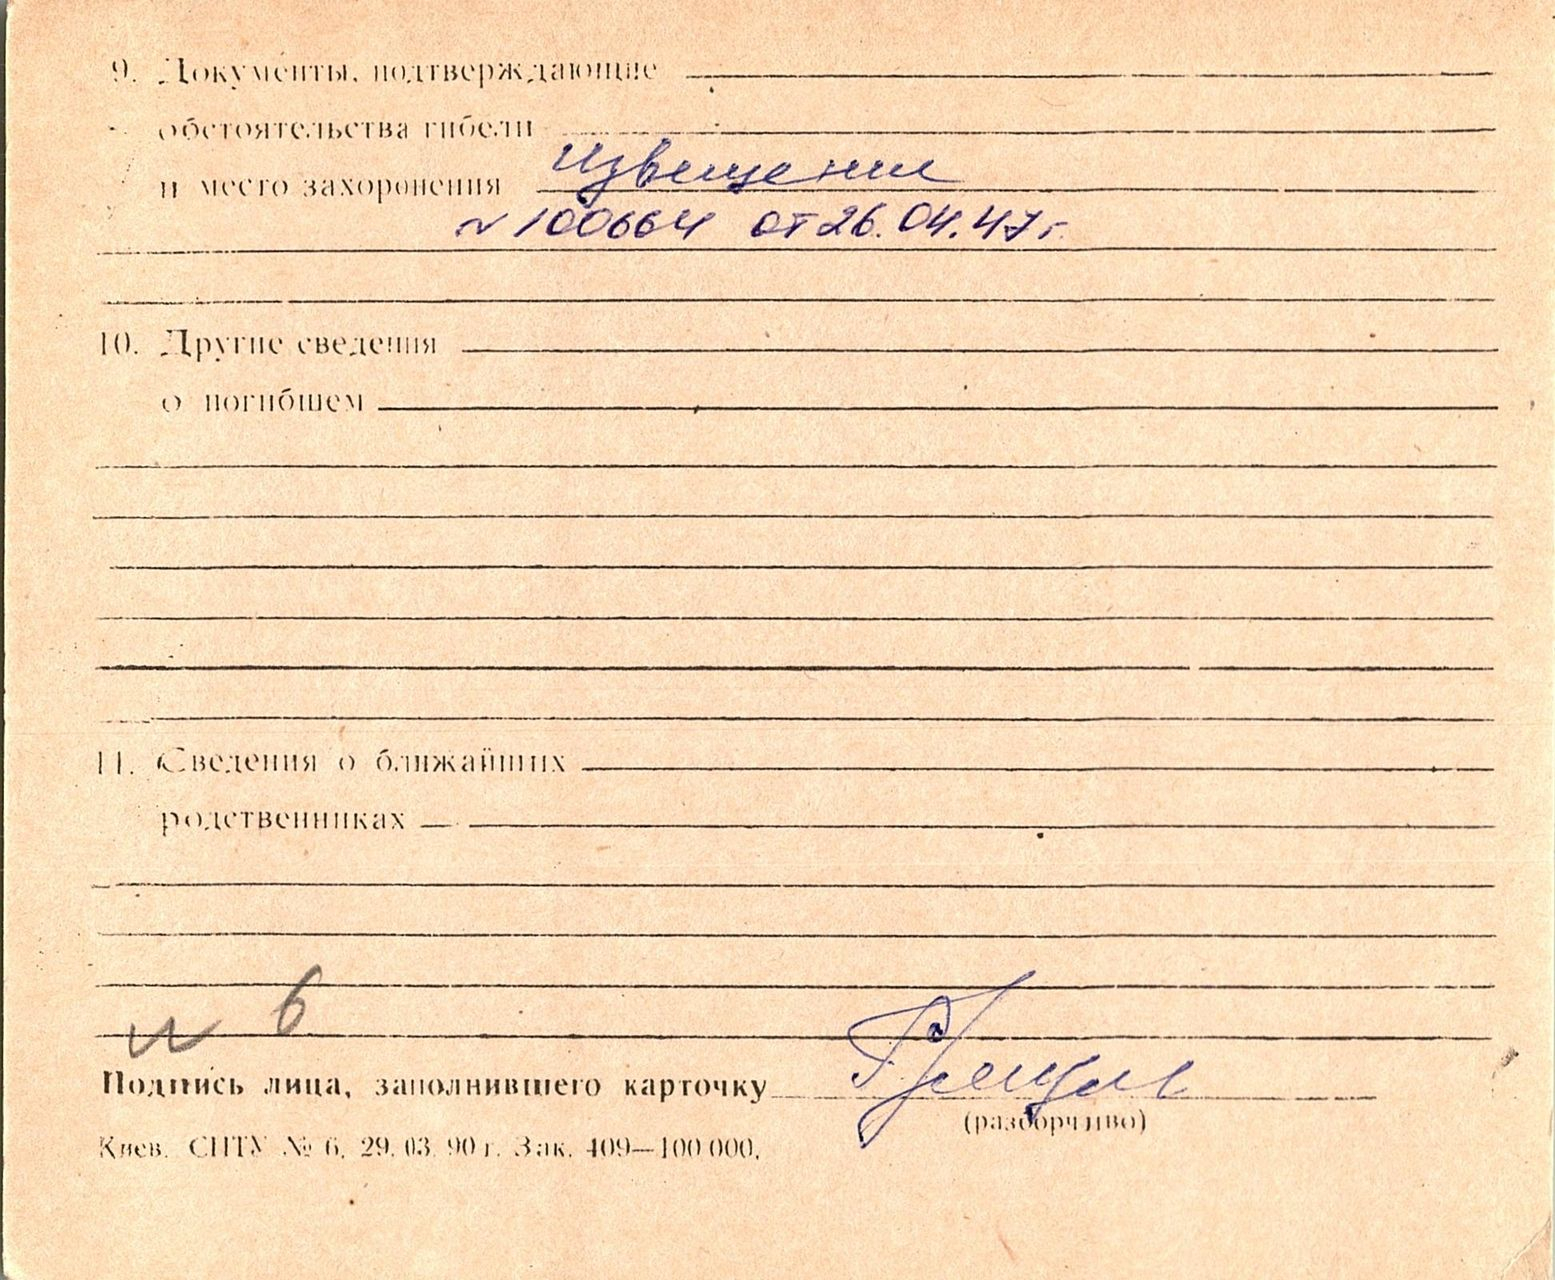 9. Документы, подтверждающие
обстоятельства гибели
и место захоронения Извещение
№ 100664 от 26.04.47 г.
10. Другие сведения
о погибшем
11. Сведения о ближайших
родственниках
№ 6
Подпись лица, заполнившего карточку
(разборчиво)
Киев. СПТУ № 6. 29.03.90 г. Зак. 409—100 000.